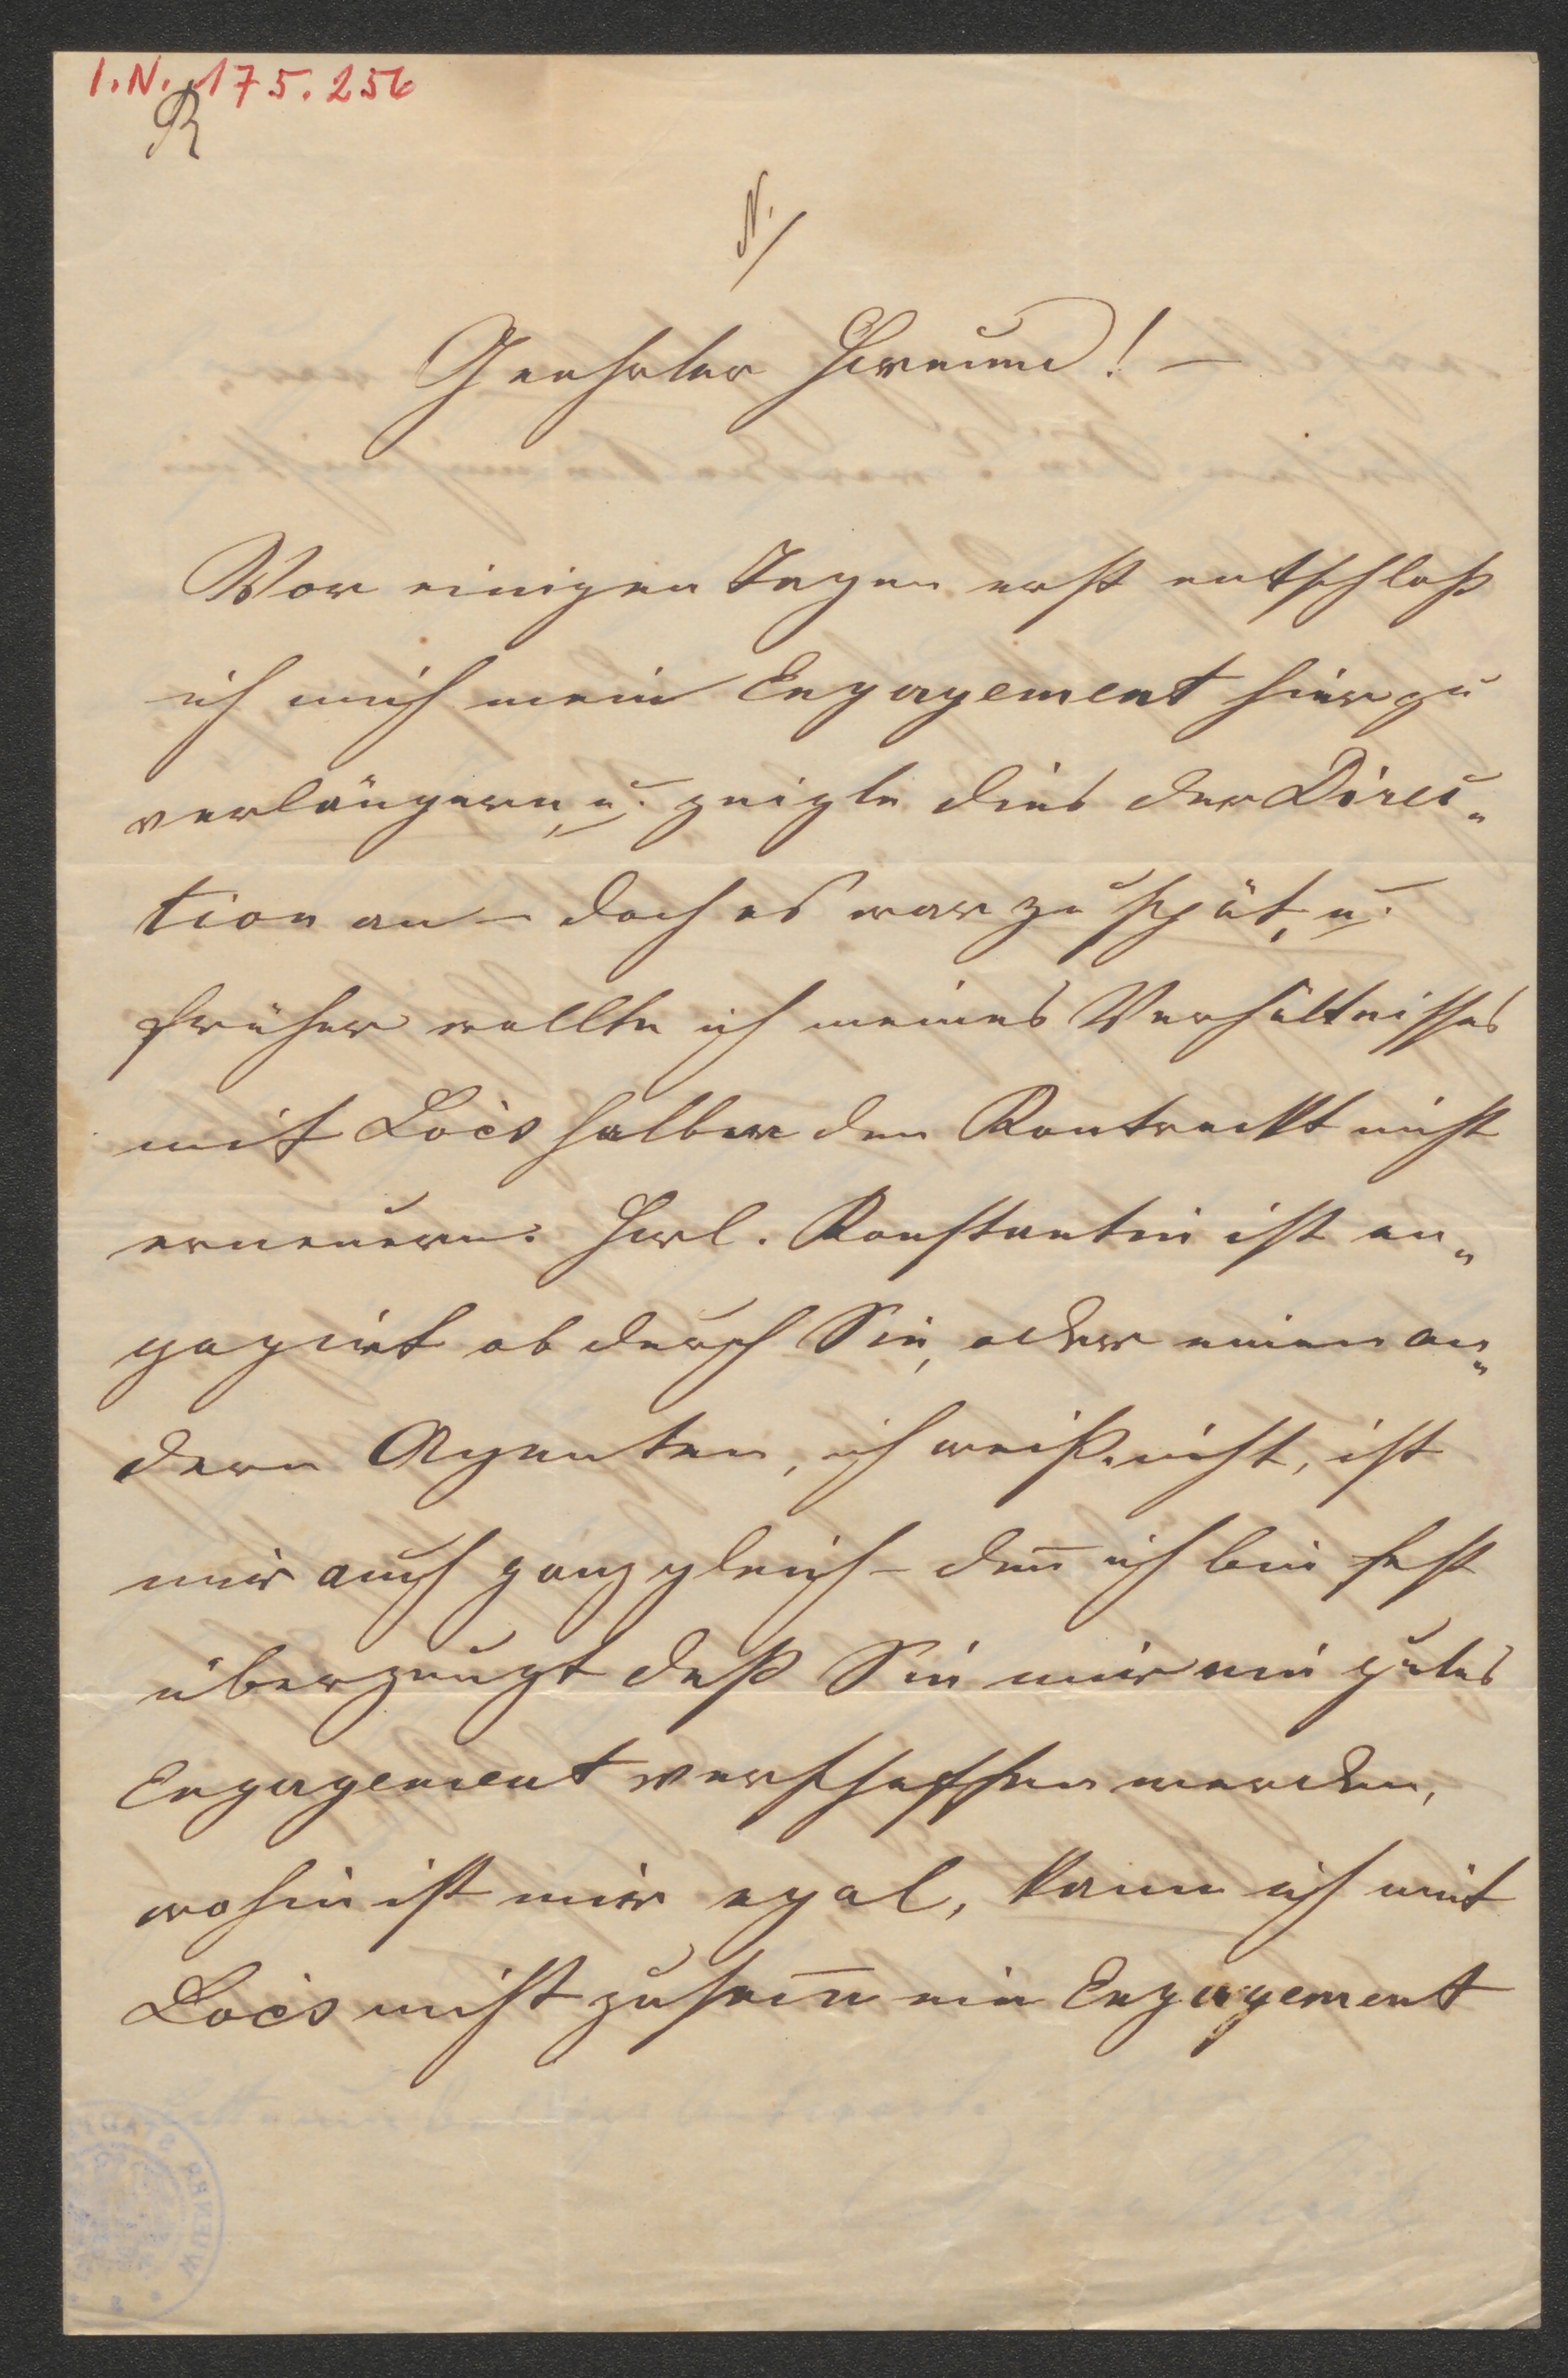 I.N. 175.256
R
N.
Geehrter Freund! –
Vor einigen Tagen erst entschloß
ich mich mein Engagement hier zu
verlängern, u. zeigte dies der Direc„
tion an – doch es war zu spät, u.
früher wollte ich meines Verhältnisses
mit Locs halber den Kontrackt nicht
erneuern. Frl. Konstantin ist en„
gagirt ob durch Sie, oder einen an„
dern Agenten, ich weiß nicht, ist
mir auch ganz gleich – den̄ ich bin fest
überzeugt daß Sie mir ein gutes
Engagement verschaffen werden,
wohin ist mir egal, kann ich mit
Locs nicht zusam̄en ein Engagement